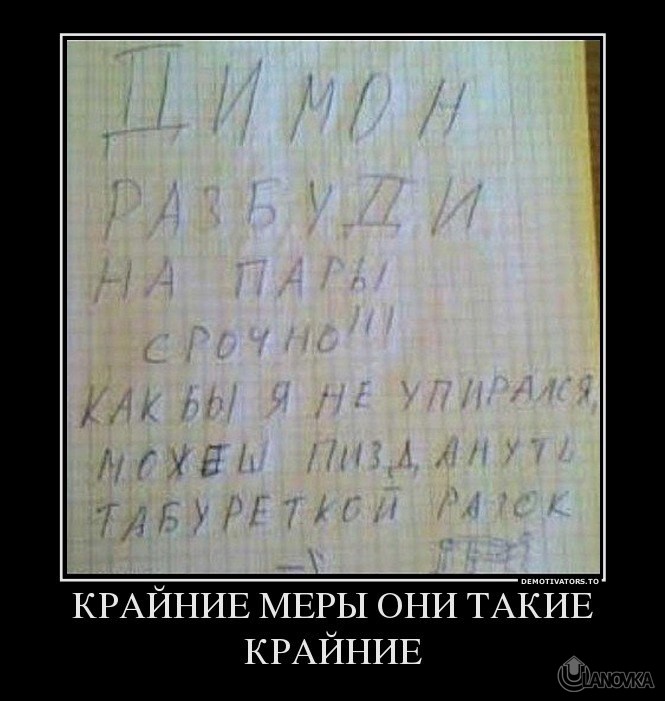 ДИМОН
РАЗБУДИ
НА ПАРЫ
СРОЧНО!!!
КАК БЫ Я НЕ УПИРАЛСЯ,
МОЖЕШ ПИЗДАНУТЬ
ТАБУРЕТКОЙ РАЗОК
DEMOTIVATORS.TO
КРАЙНИЕ МЕРЫ ОНИ ТАКИЕ
КРАЙНИЕ
ULANOVKA